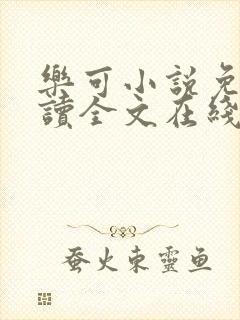 樂可小說免
讀全文在綫
蚕火東靈鱼